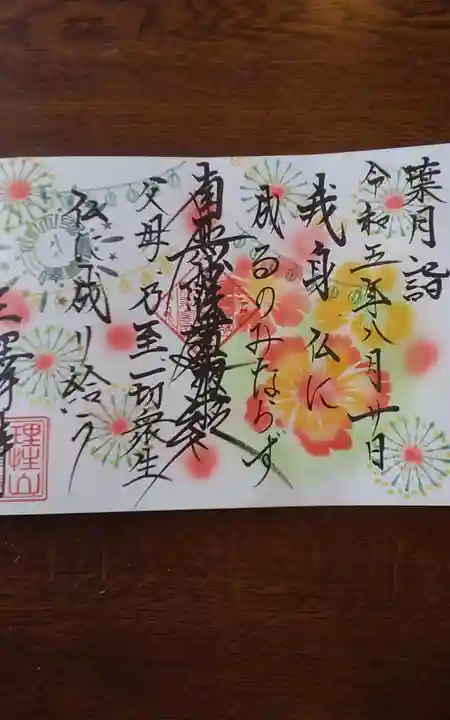 葉月詣
令和五年八月廿日
我身仏に
成るのみならず
南無妙法蓮華経
父母乃至一切衆生
仏に成り給う
理性山